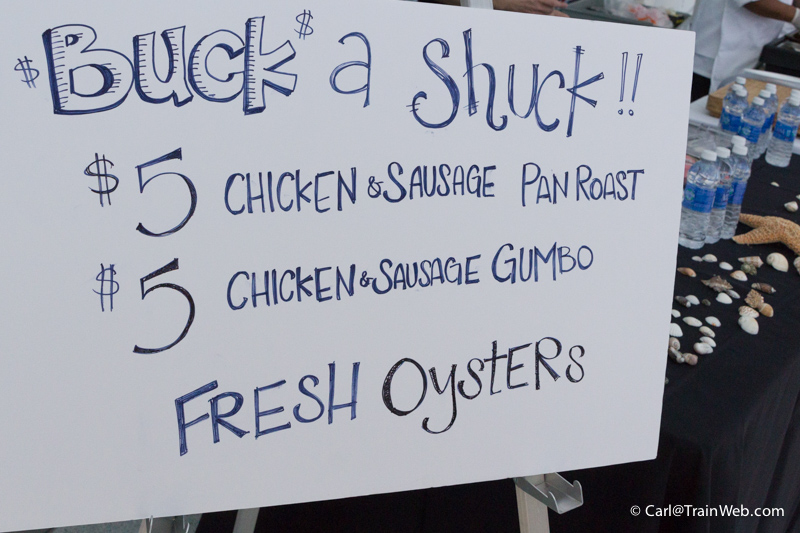 $Buck$ a Shuck!!
$5 CHICKEN & SAUSAGE PAN ROAST
$5 CHICKEN & SAUSAGE GUMBO
FRESH OysTERs
© Carl@TrainWeb.com